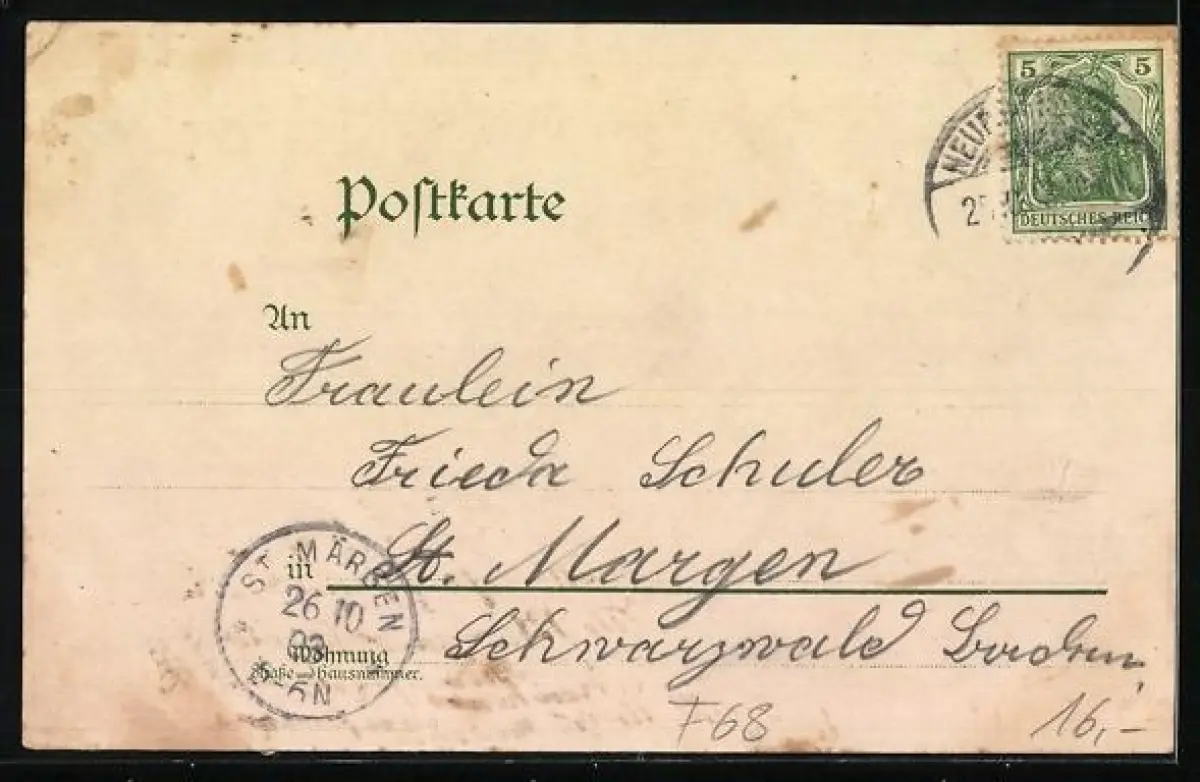 5 5
DEUTSCHES REICH
Postkarte
An
Fraulein
Frieda Schuler
in St. Margen
Schwarzwald Baden
Wohnung
Straße und Hausnummer.
ST. MÄRGEN
26 10
F68
16,-